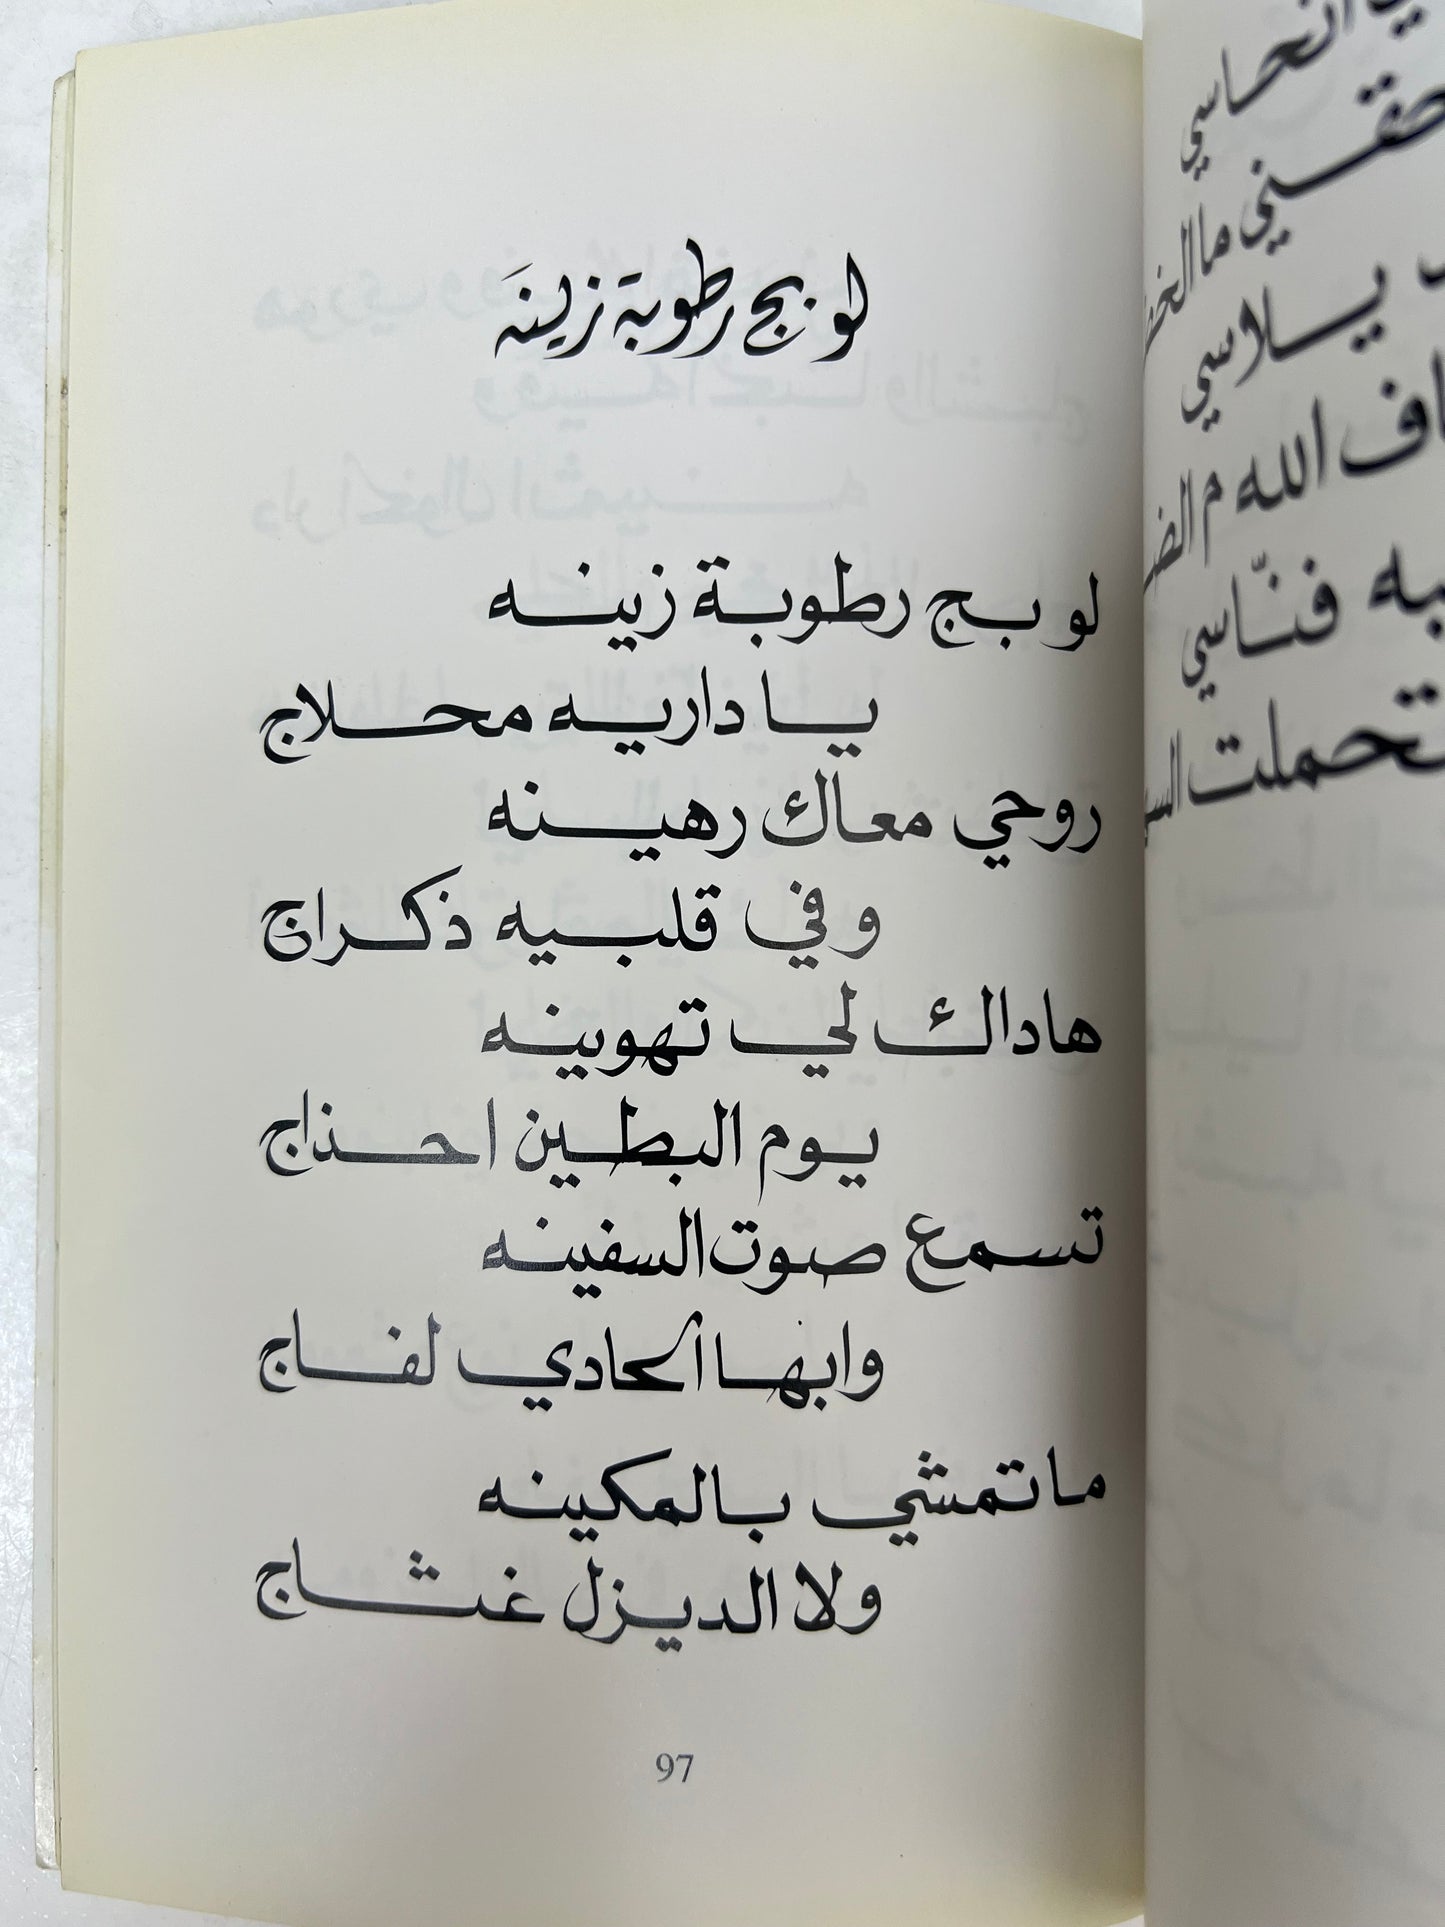 لو بج رطوبة زينه
لو بج رطوبة زينه
يا داريه محلاج
روحي معاك رهينه
وفي قلبيه ذكراج
هاداك لي تهوينه
يوم البطين احذاج
تسمع صوت السفينه
وابها الحادي لفاج
ما تمشي بالمكينه
ولا الديزل غثاج
97
يلاسي
اف الله م
به فنّاسي
تحملت